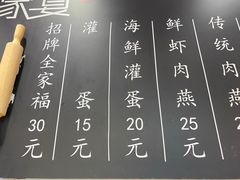 家宴
招牌全家福
30元
灌蛋
15元
海鲜灌蛋
20元
鲜虾肉燕
25元
传统肉燕
元